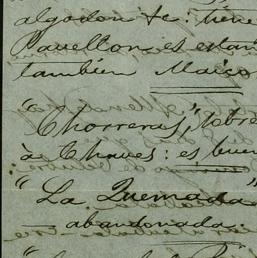 algodon &c: tiene
Pavellon, et estan
tambien Maiso
"Chorreras", sobre
à Chaves: es buen
"La Quemada"
abandonada